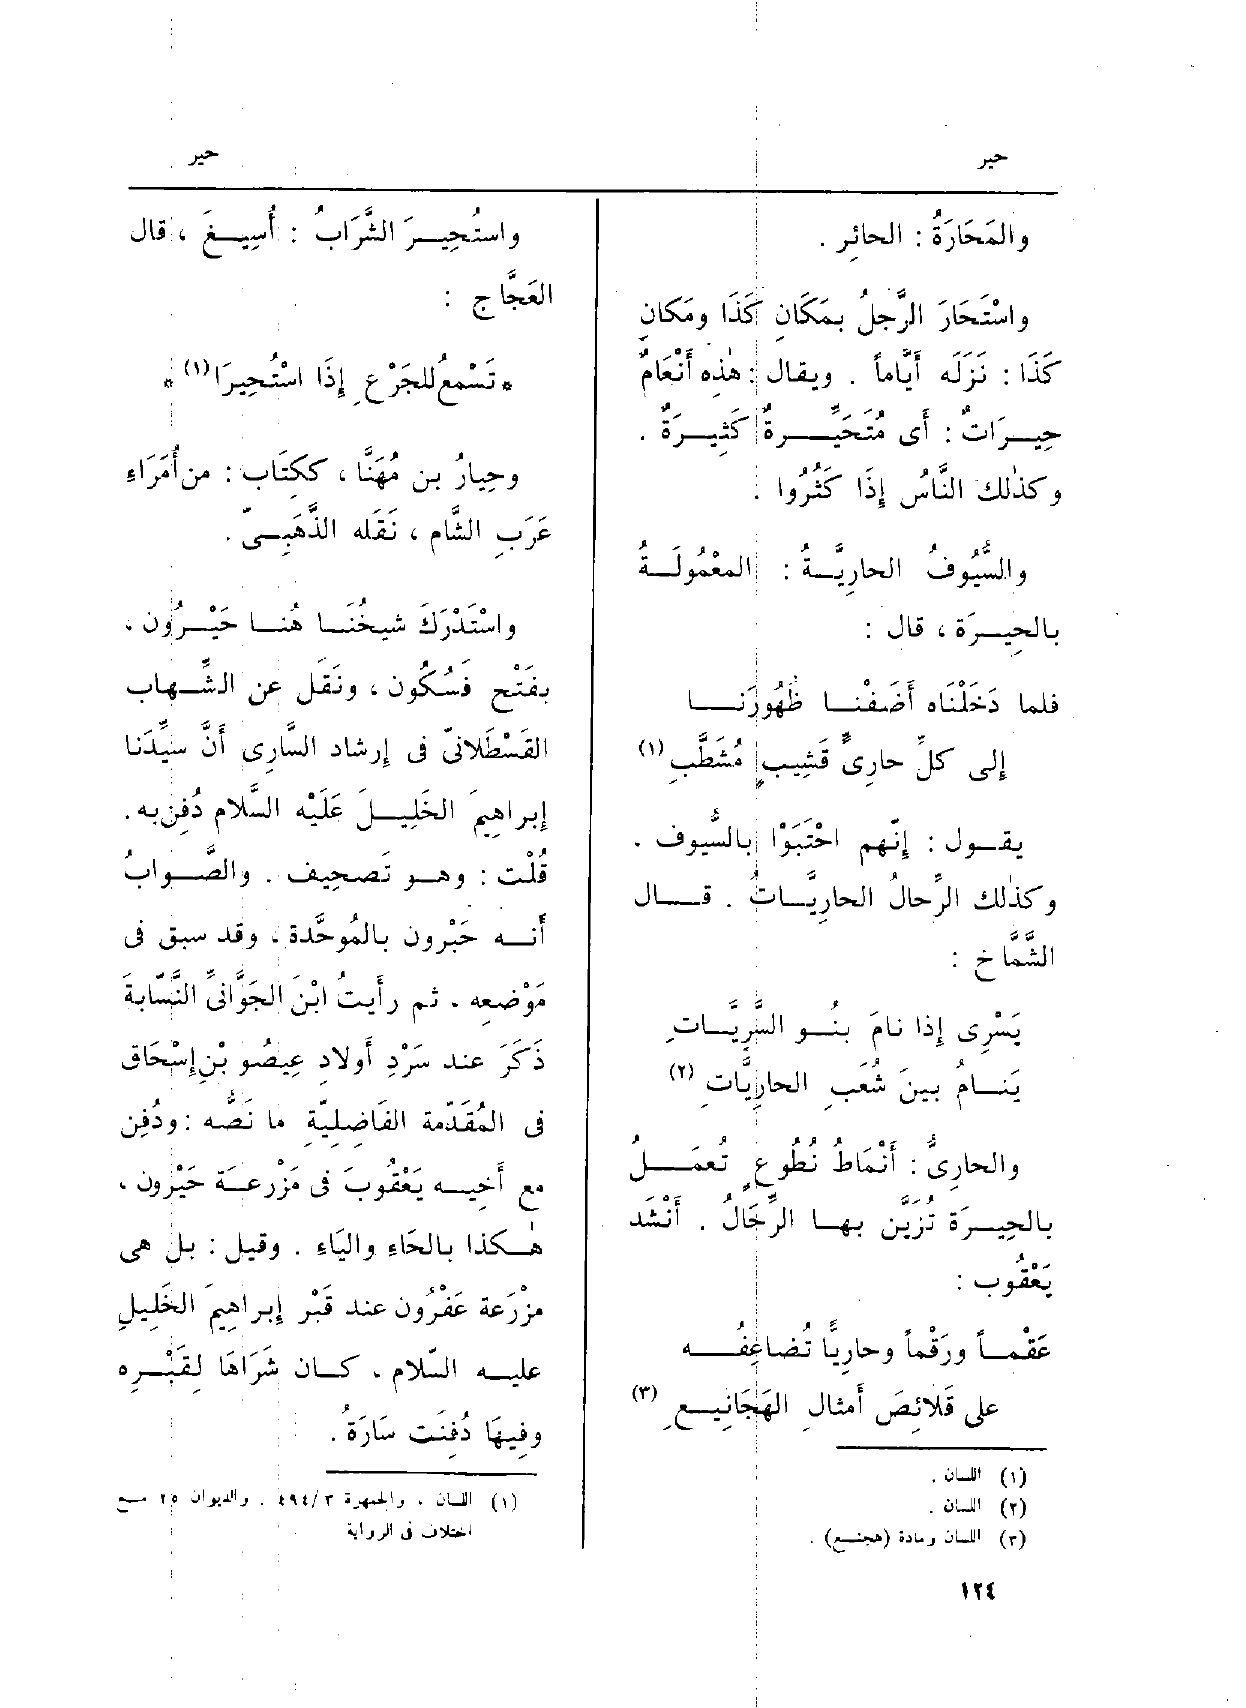 حير
حير
والمَحَارَةُ : الحائِر .
واسْتَحَارَ الرَّجلُ بمَكَانِ كَذَا ومَكانِ
كَذَا : نَزَلَه أَيَّاماً . ويقال : هٰذِه أَنْعَامٌ
حِيرَاتٌ : أَى مُتَحَيِّرةٌ كَثِيرَةٌ .
وكذٰلك النَّاسُ إِذَا كَثُرُوا .
والسُّيُوفُ الحارِيَّةُ : المعْمُولَةُ
بالحِيرَة ، قال :
فلما دَخَلْنَاه أَضَفْنا ظُهُورَنا
إِلى كلِّ حارِىٍّ قَشِيبٍ مُشَطَّبِ (١)
يقول : إِنّهم احْتَبَوْا بالسُّيوف .
وكذٰلك الرِّحالُ الحارِيَّاتُ . قال
الشَّمَّاخ :
يَسْرِى إِذا نامَ بنُو السَّرِيَّاتِ
يَنامُ بينَ شُعَبِ الحارِيَّاتِ (٢)
والحارِىُّ : أَنْمَاطُ نُطُوعٍ تُعمَلُ
بالحِيرَة تُزَيَّن بها الرِّحَالُ . أَنْشَد
يَعْقُوب :
عَقْماً ورَقْماً وحارِيًّا تُضَاعِفُه
على قَلائِصَ أَمثالِ الهَجَانِيعِ (٣)
(١) اللسان .
(٢) اللسان .
(٣) اللسان ومادة (هجنع) .
واستُحِيرَ الشَّرَابُ : أُسِيغَ ، قال
العَجَّاج :
* تَسْمَعُ للجَرْعِ إِذَا اسْتُحِيرَا (١) *
وحِيارُ بن مُهَنَّا ، ككِتَاب : من أُمَرَاءِ
عَرَبِ الشَّام ، نَقَله الذَّهَبِىّ .
واسْتَدْرَكَ شيخُنَا هُنا حَيْرُون ،
بفَتْح فَسُكُون ، ونَقَل عن الشِّهاب
القَسْطَلانىّ فى إِرشاد السَّارِى أَنَّ سيِّدَنا
إِبراهِيمَ الخَلِيلَ عَلَيْه السَّلام دُفِن به .
قُلْت : وهو تَصحِيف . والصَّوابُ
أَنه حَبْرون بالمُوحَّدة ، وقد سبق فى
مَوْضِعِه . ثم رأَيتُ ابْنَ الجَوَّانىِّ النَّسّابةَ
ذَكَرَ عند سَرْدِ أَولادِ عِيصُو بْنِ إِسْحَاق
فى المُقَدّمة الفَاضِلِيّة ما نَصُّه : ودُفِن
مع أَخِيه يَعْقُوبَ فى مَزْرعة حَيْرُون ،
هٰكذا بالحَاءِ واليَاءِ . وقيل : بل هى
مزْرَعة عَفْرُون عند قَبْر إِبراهِيمَ الخَلِيلِ
عليه السّلام ، كان شَرَاهَا لِقَبْرِه
وفِيهَا دُفِنَت سَارَةُ .
(١) اللسان ، والجمهرة ٤٩٤/٣ . والديوان ٢٥ مع
اختلاف فى الرواية
١٢٤